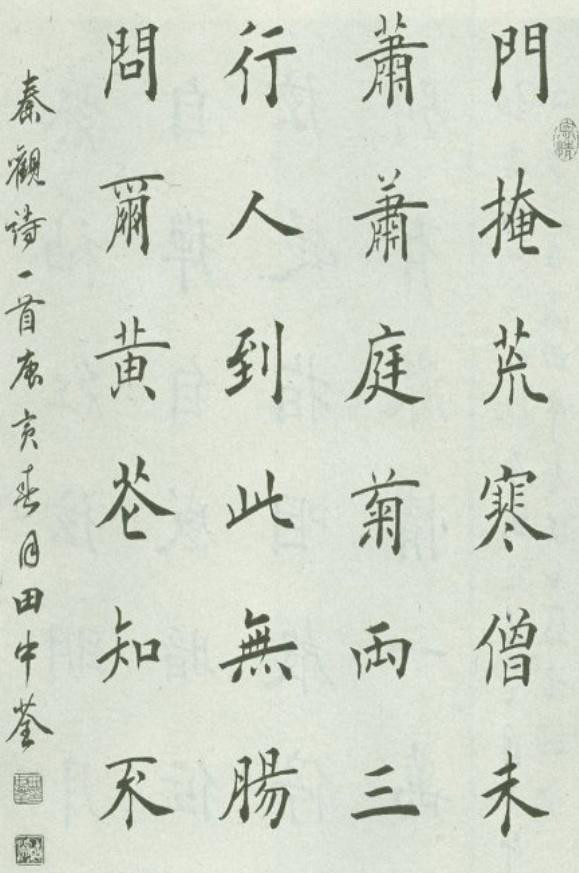 門掩荒寒僧未
蕭蕭庭菊兩三
行人到此無腸
問爾黃花知不
秦觀詩一首庚寅春月田中荃